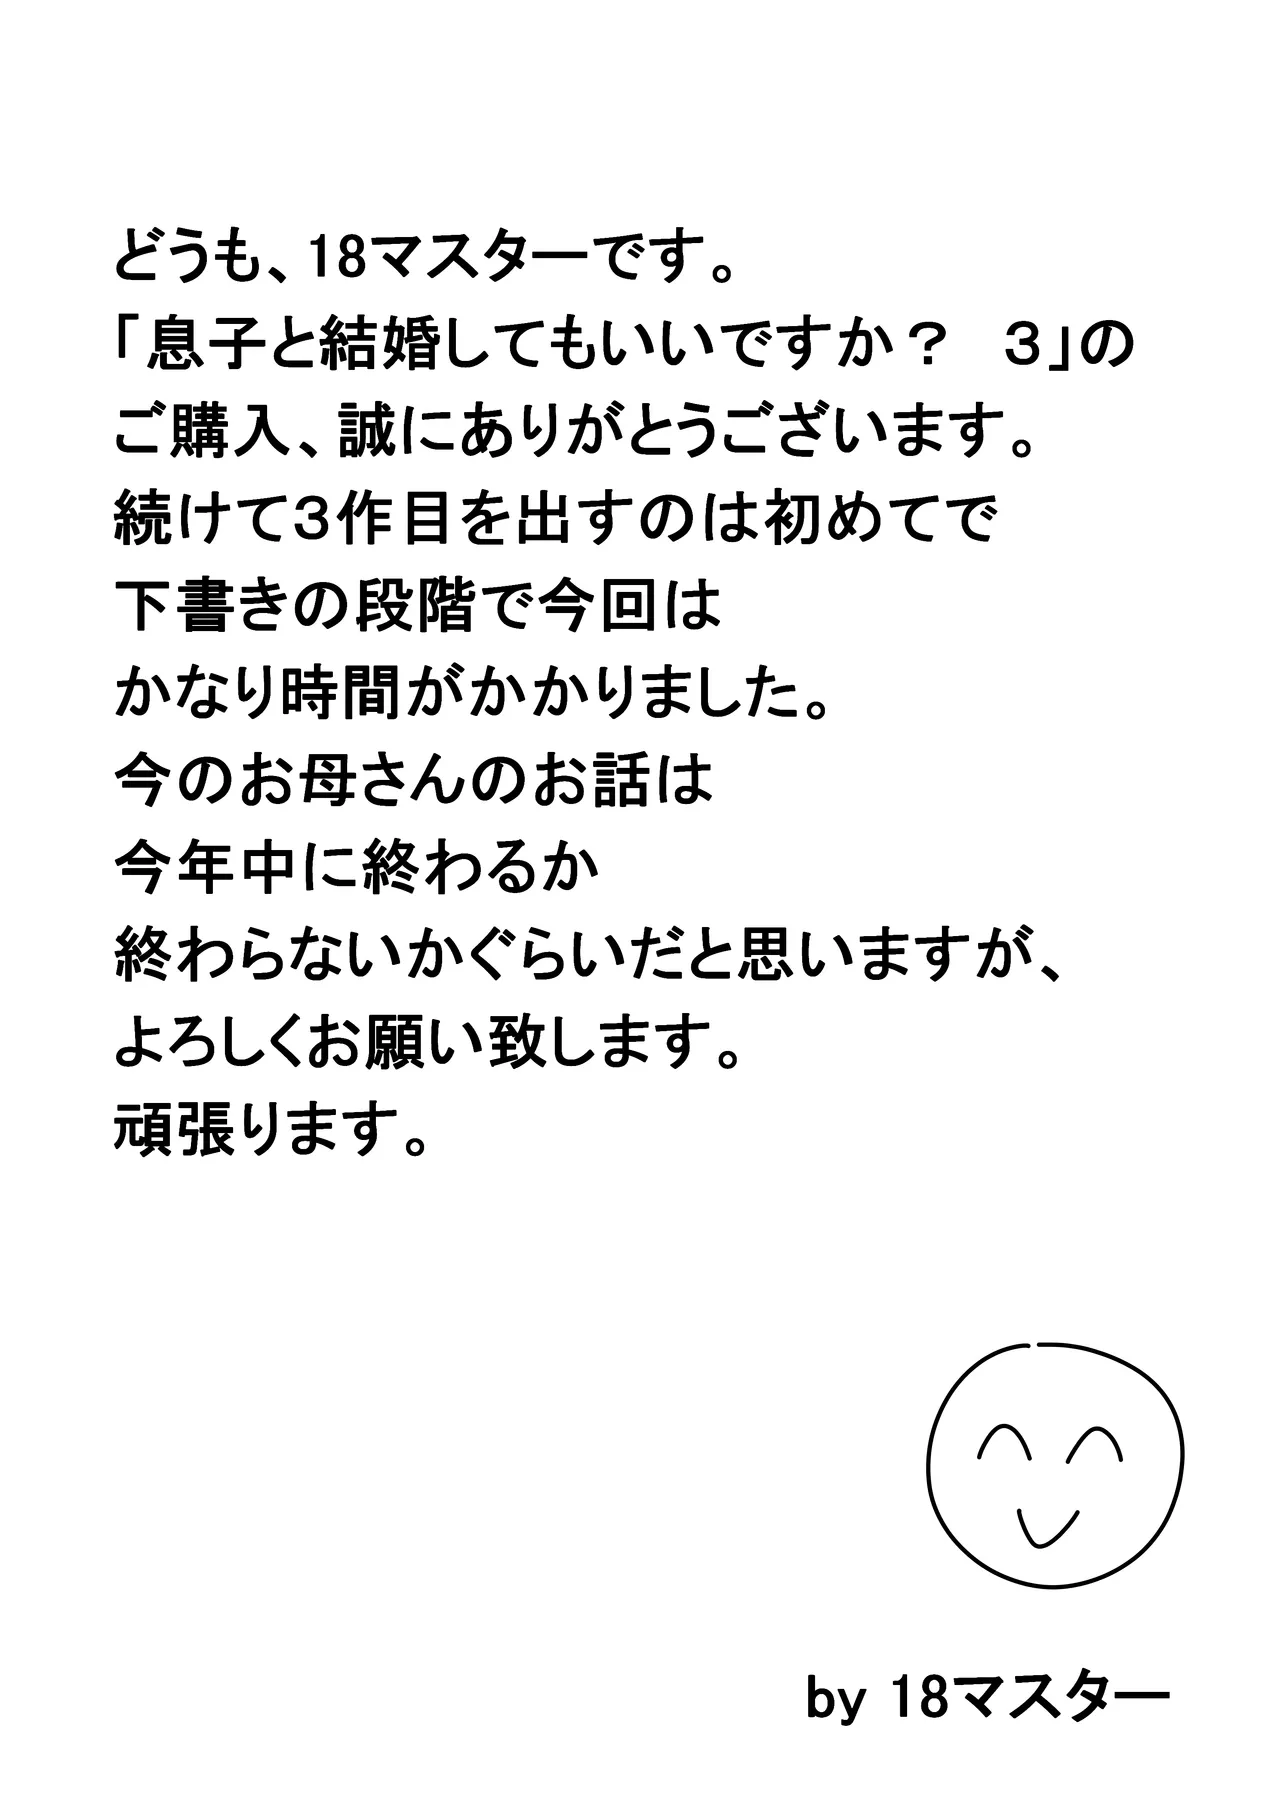 どうも、18マスターです。
「息子と結婚してもいいですか？　３」の
ご購入、誠にありがとうございます。
続けて３作目を出すのは初めてで
下書きの段階で今回は
かなり時間がかかりました。
今のお母さんのお話は
今年中に終わるか
終わらないかぐらいだと思いますが、
よろしくお願い致します。
頑張ります。
by 18マスター